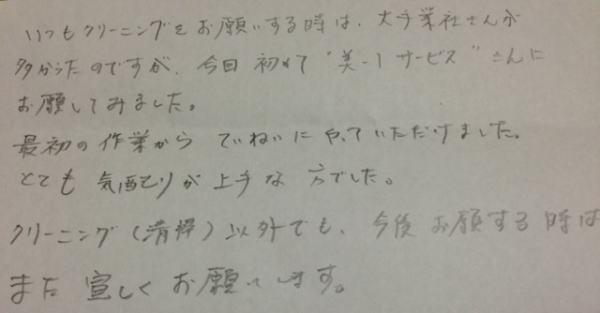 いつもクリーニングをお願いする時は、大手業社さんが
多かったのですが、今回初めて"美-1サービス"さんに
お願してみました。
最初の作業から ていねいにやっていただけました。
とても 気配りが上手な方でした。
クリーニング(清掃)以外でも、今後お願する時は
また 宜しくお願いします。